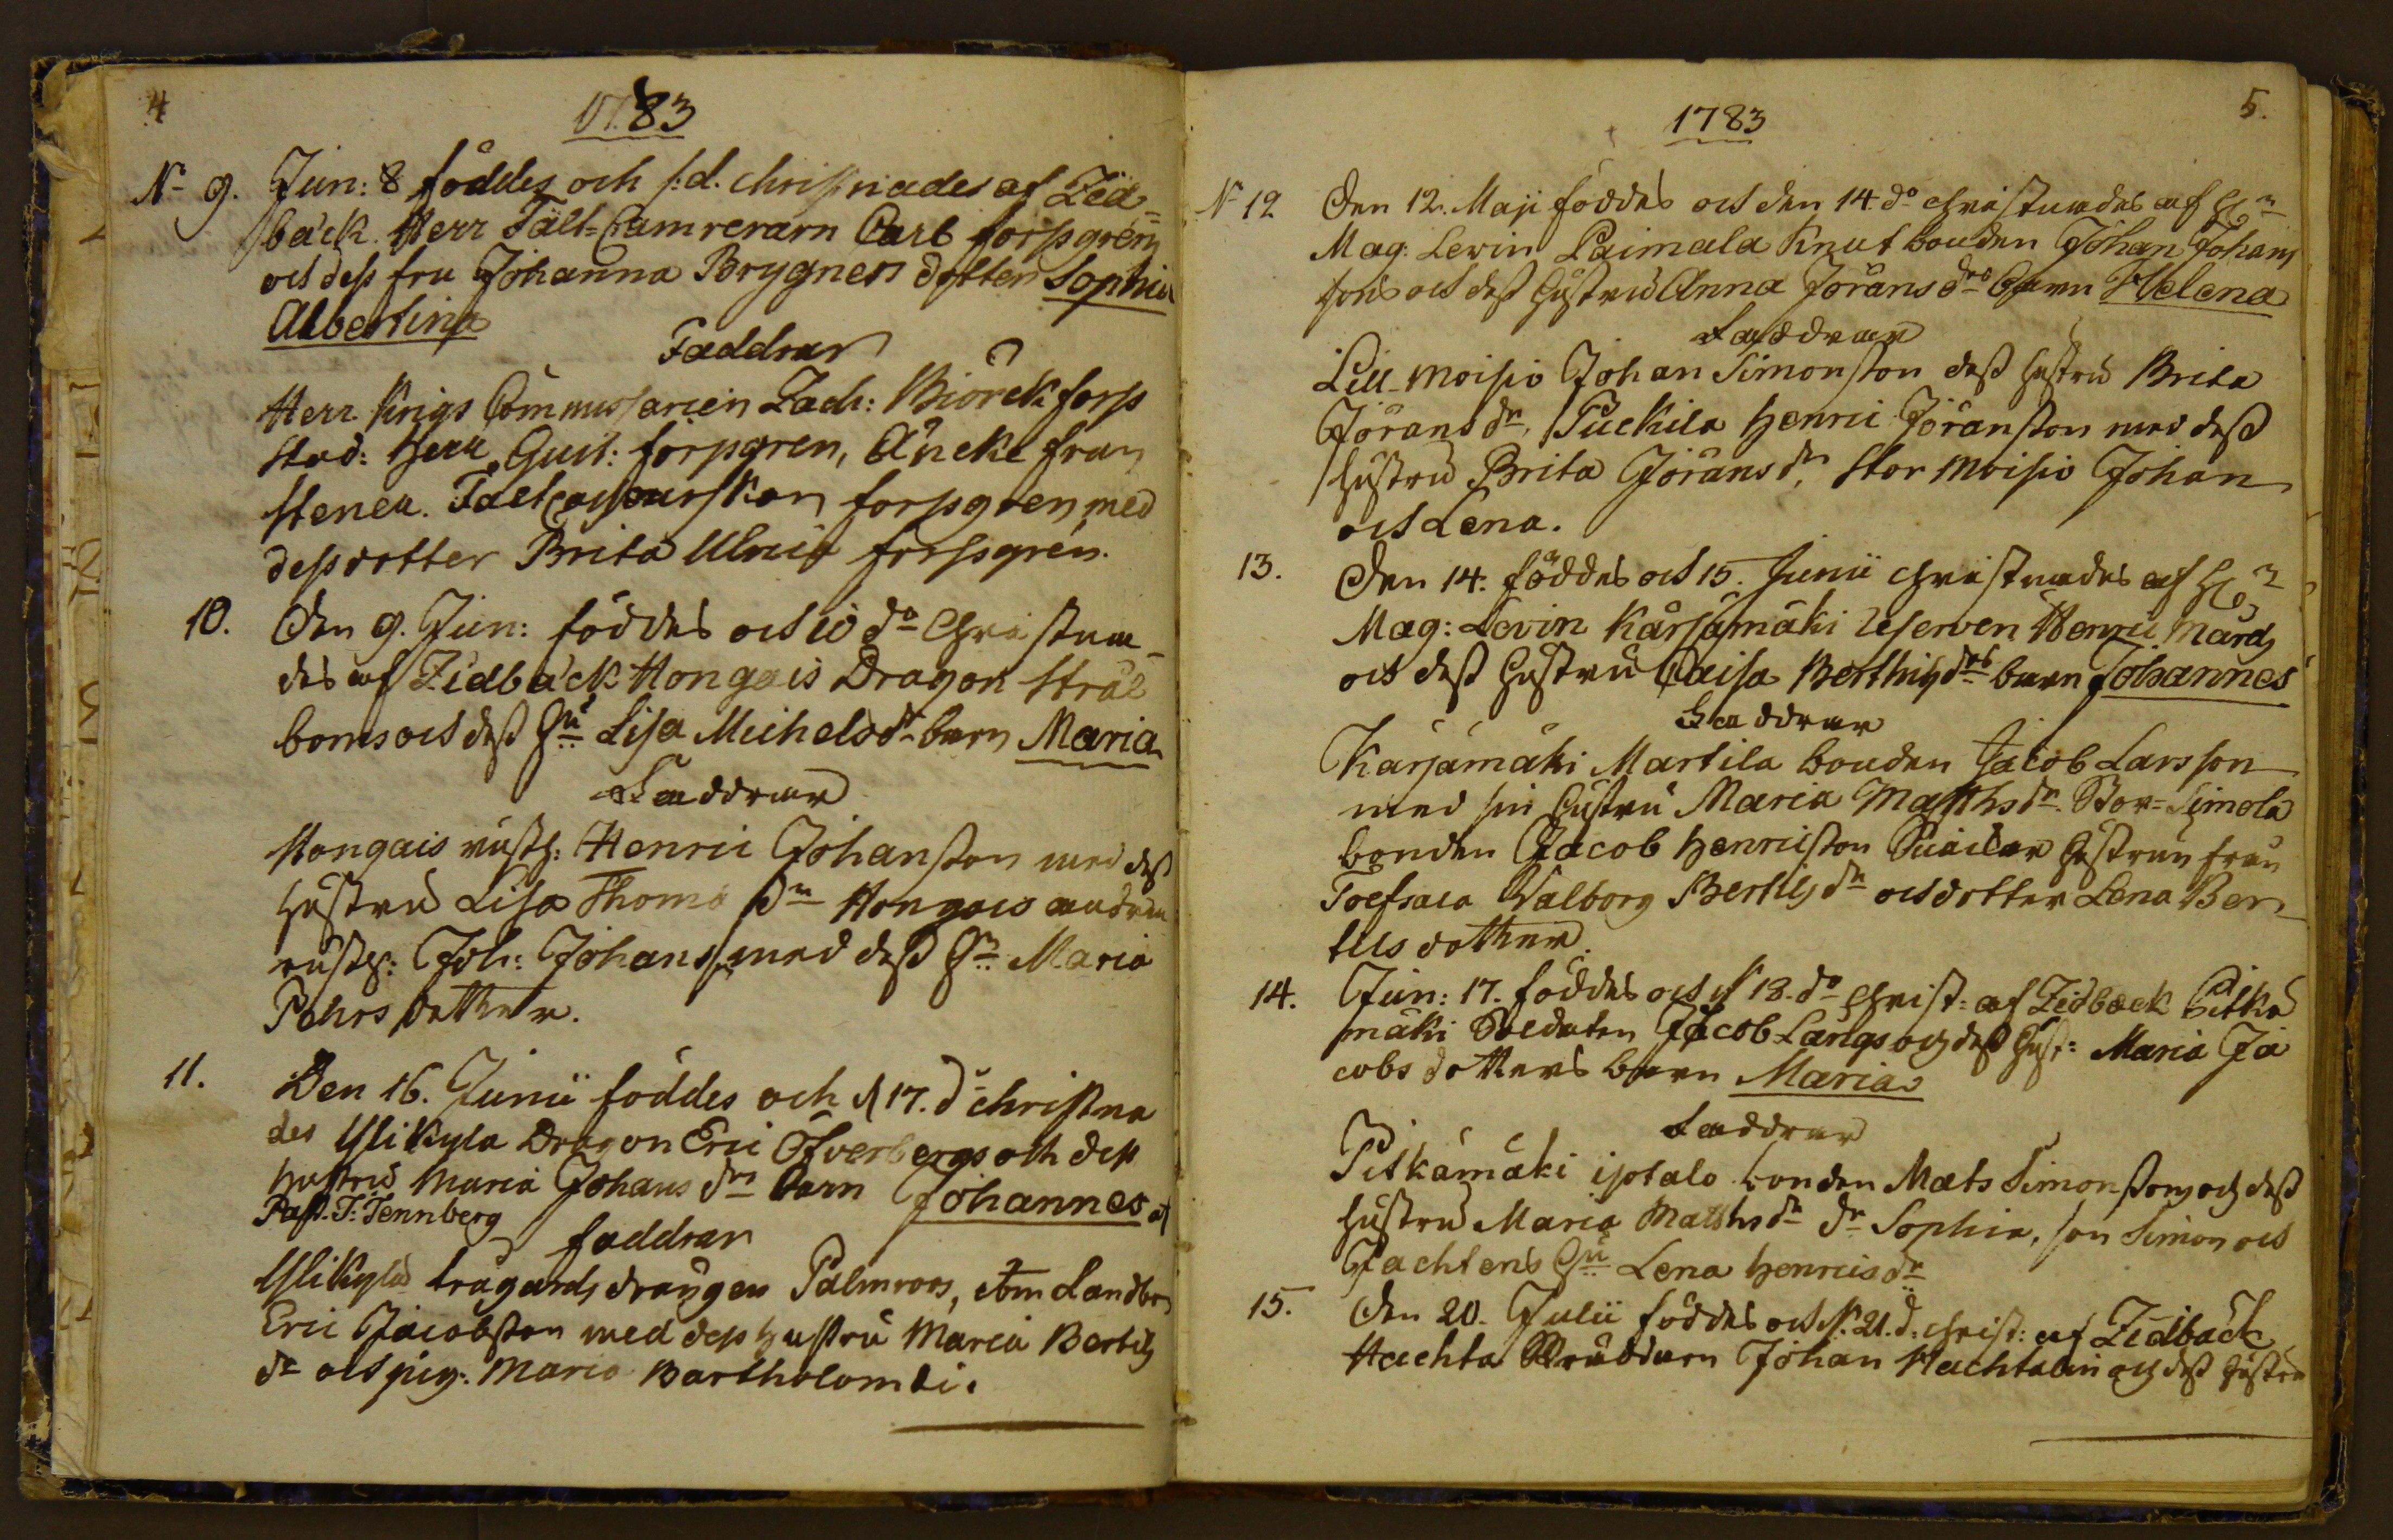 4
1783
No 9. Jun: 8 föddes och s:d. christnades af Zid=
bäck Herr Fält-Camrerarn Carl forssgrens
och dess fru Johanna Brygners dotter Sophia
Albertina
Faddrar
Herr Krigs Commissarien Zach: Biörck forss
Stud: Herr Gust: forssgren, Änckefrun
Stenea. forssgren med
dess dotter Brita Ulrica forssgren.
10. Den 9. Jun: föddes och 10 do Christna-
des af Zidbäck Hongais Dragon Strål
boms och dess Hu Lisa Michelsdr barn Maria
Faddrar
Hongais rusth: Henric Johansson med dess
hustru Lisa Thomæ dr Hongais andra
rusth: Joh: Johanss. med dess Hu Maria
Pehrs dotter.
11. Den 16. Junii föddes och d 17. do christna
des Ylikyla Dragon Eric Öfverbergs och dess
hustru Maria Johans drs barn Johannes af
Past. J: Tennberg
faddrar
Ylikyla trägårds drängen Palmroos, Landbon
Eric Jacobsson med dess hustru Maria Bertils
dr och pig: Maria Bartholomæi.
5.
1783
No 12 Den 12. Maji föddes och den 14 do christnades af Hr
Mag: Levin Paimala Knut bonden Johan Johans
sons och dess hustru Anna Jörans drs barn Helena
Faddrar
Lill-Moisio Johan Simonsson dess hustru Brita
Jörans dr, Puckila Henric Jöransson med dess
hustru Brita Jörans dr, Stor Moisio Johan
och Lena.
13. Den 14: föddes och 15. Junii christnades af Hr
Mag: Levin Kärsämäki reserven Henric Mårds
och dess hustru Caisa Berthils drs barn Johannes
Faddrar
Karsämäki Martila bonden Jacob Larsson
med sin hustru Maria Matths dr. Stor=Simola
bonden Jacob Henricsson hustrun från
Walborg Bertils dr och dotter Lena Ber-
tils dotter.
14. Jun: 17. föddes och d 18. do Christ: af Zidbäck Pitkä
mäki Soldaten Jacob Långs och dess hust: Maria Ja
cobs dotters barn Maria
Faddrar
Pitkämäki isotalo bonden Mats Simonsson och dess
hustru Maria Matths dr dr Sophia, son Simon och
Hu Lena Henrics dr
15. Den 20. Julii föddes och d. 21. d. christ: af Zidbäck
Hachta Johan och dess hustru